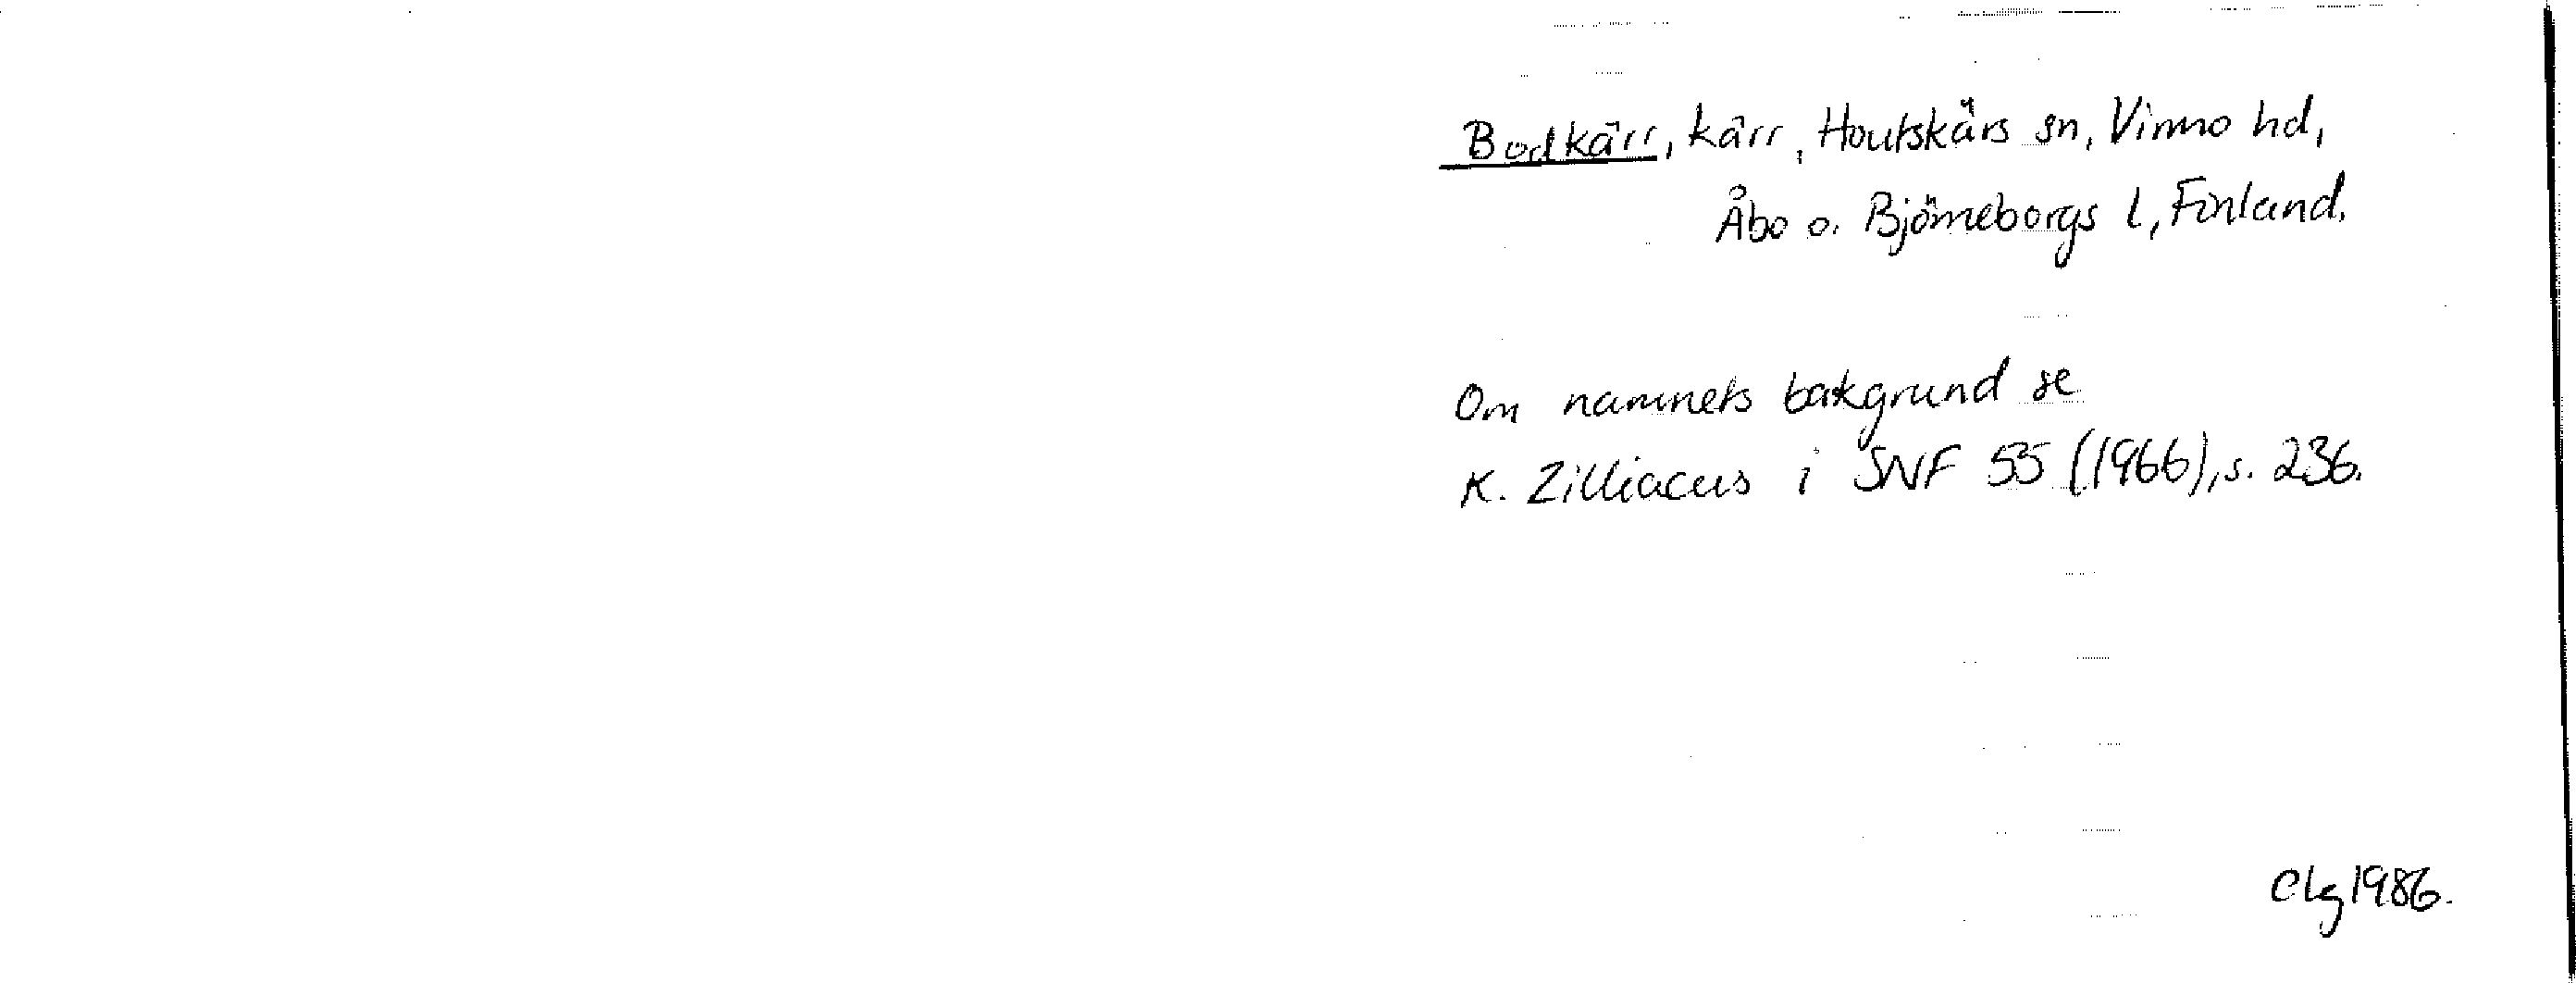 Bodkärr, kärr, Houtskärs sn, Vinmo hd,
Åbo o. Björneborgs l, Finland.
Om namnets bakgrund se
K. Zilliacus i SNF 55 (1966), s. 236.
CLg 1986.